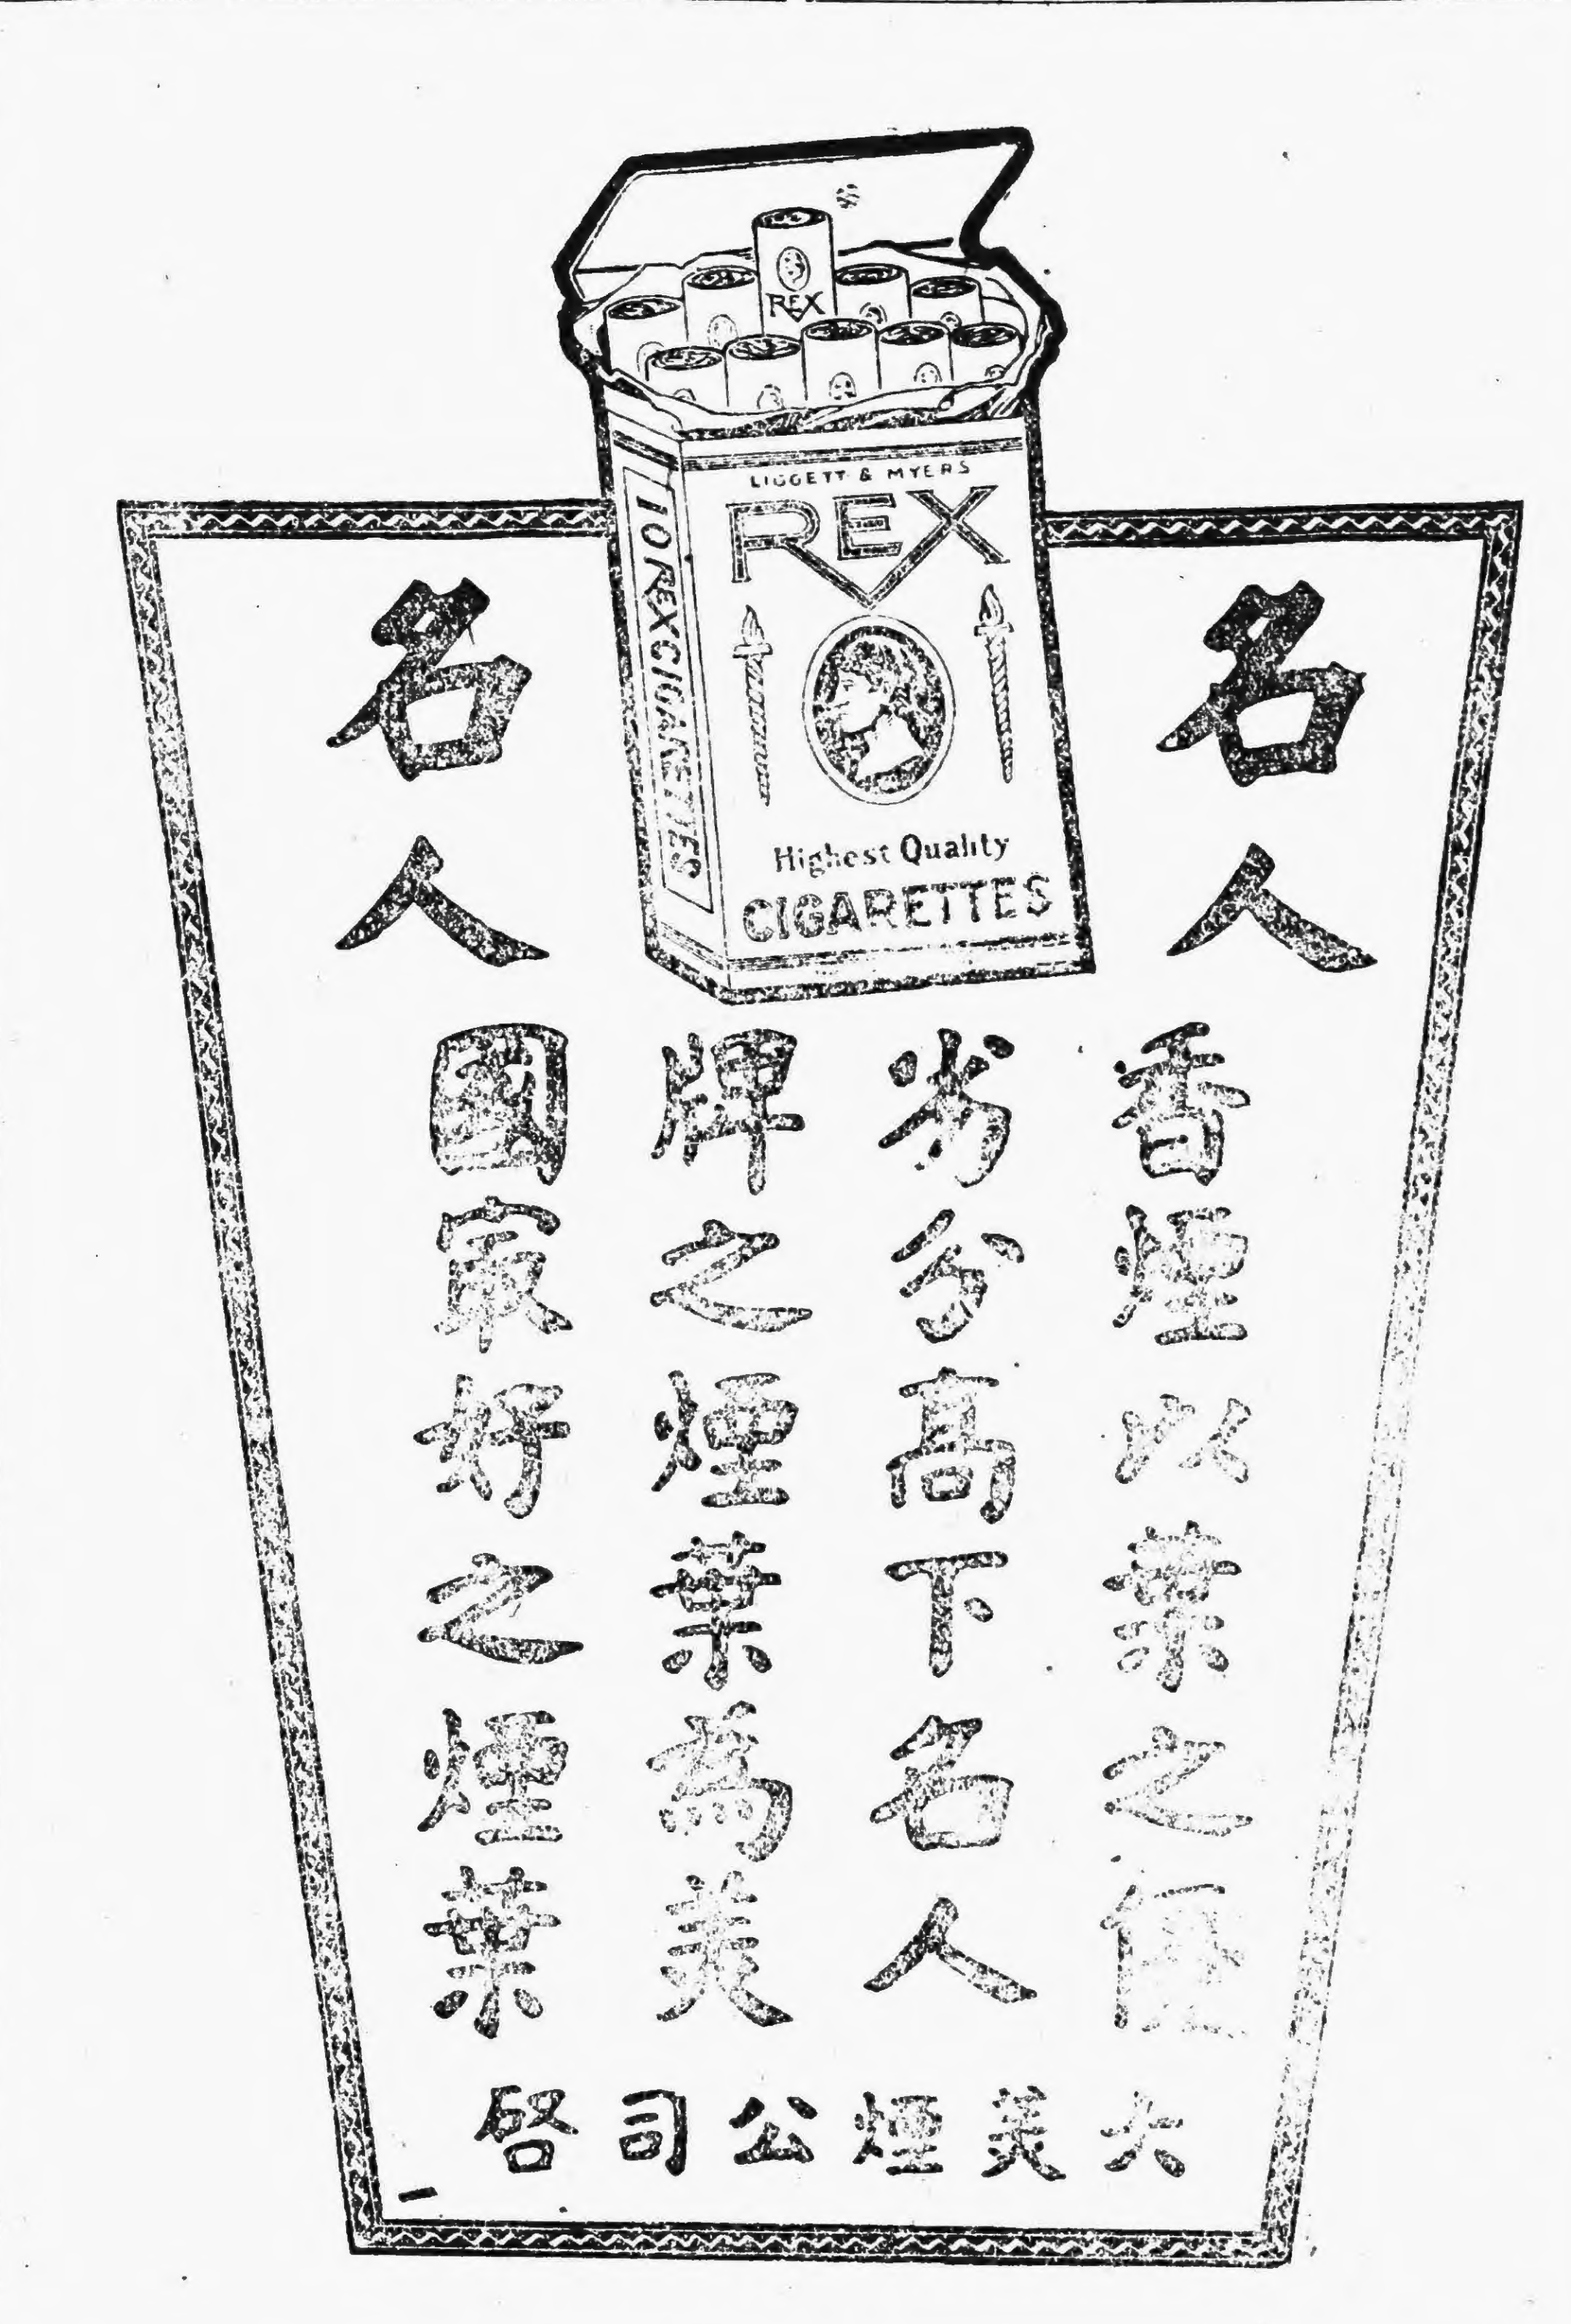 REX
LIGGETT & MYERS
REX
Highest Quality
CIGARETTES
10 REX CIGARETTES
名人
名人
香煙以葉之優
劣分高下名人
牌之煙葉為美
國最好之煙葉
大美煙公司啓